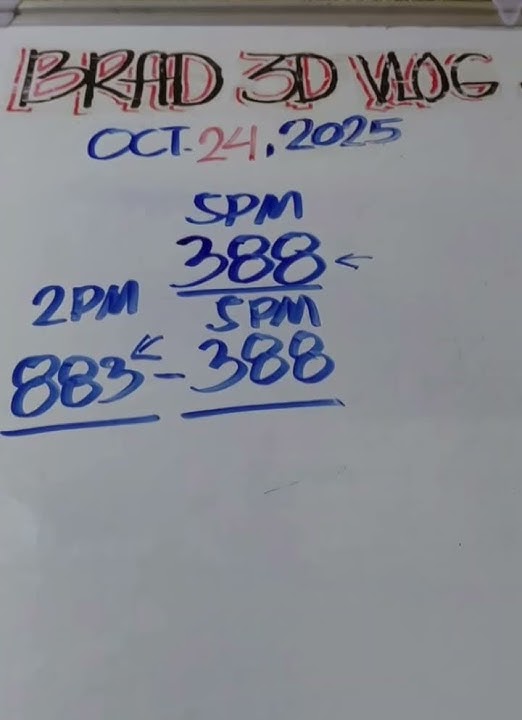 BRAD 3D VLOG
OCT. 24, 2025
5PM
388 ←
2PM 5PM
883 ← - 388